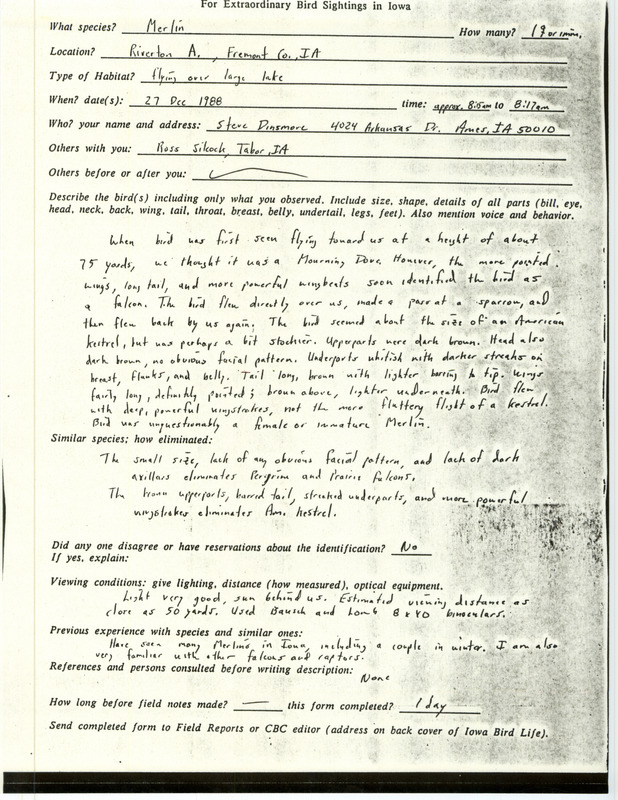 For Extraordinary Bird Sightings in Iowa
What species? Merlin How many? 1 ♀ or imm.
Location? Riverton A., Fremont Co., IA
Type of Habitat? flying over large lake
When? date(s): 27 Dec 1988 time: approx. 8:15am to 8:17am
Who? your name and address: Steve Dinsmore 4024 Arkansas Dr. Ames, IA 50010
Others with you: Ross Silcock, Tabor, IA
Others before or after you:
Describe the bird(s) including only what you observed. Include size, shape, details of all parts (bill, eye,
head, neck, back, wing, tail, throat, breast, belly, undertail, legs, feet). Also mention voice and behavior.
When bird was first seen flying toward us at a height of about
75 yards, we thought it was a Mourning Dove. However, the more pointed
wings, long tail, and more powerful wingbeats soon identified the bird as
a falcon. The bird flew directly over us, made a pass at a sparrow, and
then flew back by us again. The bird seemed about the size of an American
Kestrel, but was perhaps a bit stockier. Upperparts were dark brown. Head also
dark brown, no obvious facial pattern. Underparts whitish with darker streaks on
breast, flanks, and belly. Tail long, brown with lighter barring to tip. Wings
fairly long, definitely pointed; brown above, lighter underneath. Bird flew
with deep, powerful wingstrokes, not the more fluttery flight of a Kestrel.
Bird was unquestionably a female or immature Merlin.
Similar species; how eliminated:
The small size, lack of any obvious facial pattern, and lack of dark
axillars eliminates Peregrine and Prairie Falcons.
The brown upperparts, barred tail, streaked underparts, and more powerful
wingstrokes eliminates Am. Kestrel.
Did any one disagree or have reservations about the identification? No
If yes, explain:
Viewing conditions: give lighting, distance (how measured), optical equipment.
Light very good, sun behind us. Estimated viewing distance as
close as 50 yards. Used Bausch and Lomb 8x40 binoculars.
Previous experience with species and similar ones:
Have seen many Merlins in Iowa, including a couple in winter. I am also
very familiar with other falcons and raptors.
References and persons consulted before writing description:
None
How long before field notes made? — this form completed? 1 day
Send completed form to Field Reports or CBC editor (address on back cover of Iowa Bird Life).